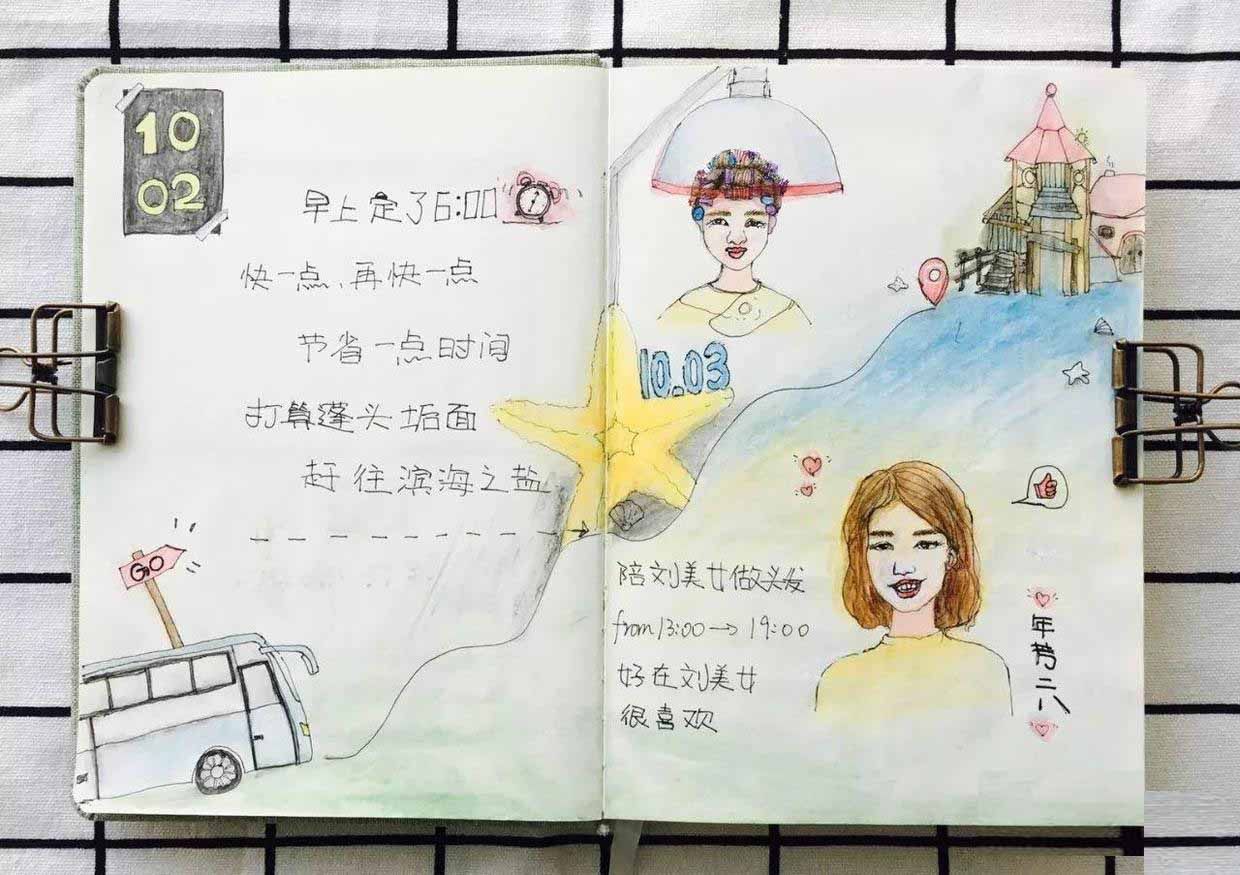 10
02
早上定了6:00
快一点、再快一点
节省一点时间
打算蓬头垢面
赶往滨海之盐
GO
10.03
陪刘美女做头发
from 13:00→19:00
好在刘美女
很喜欢
年芳二八